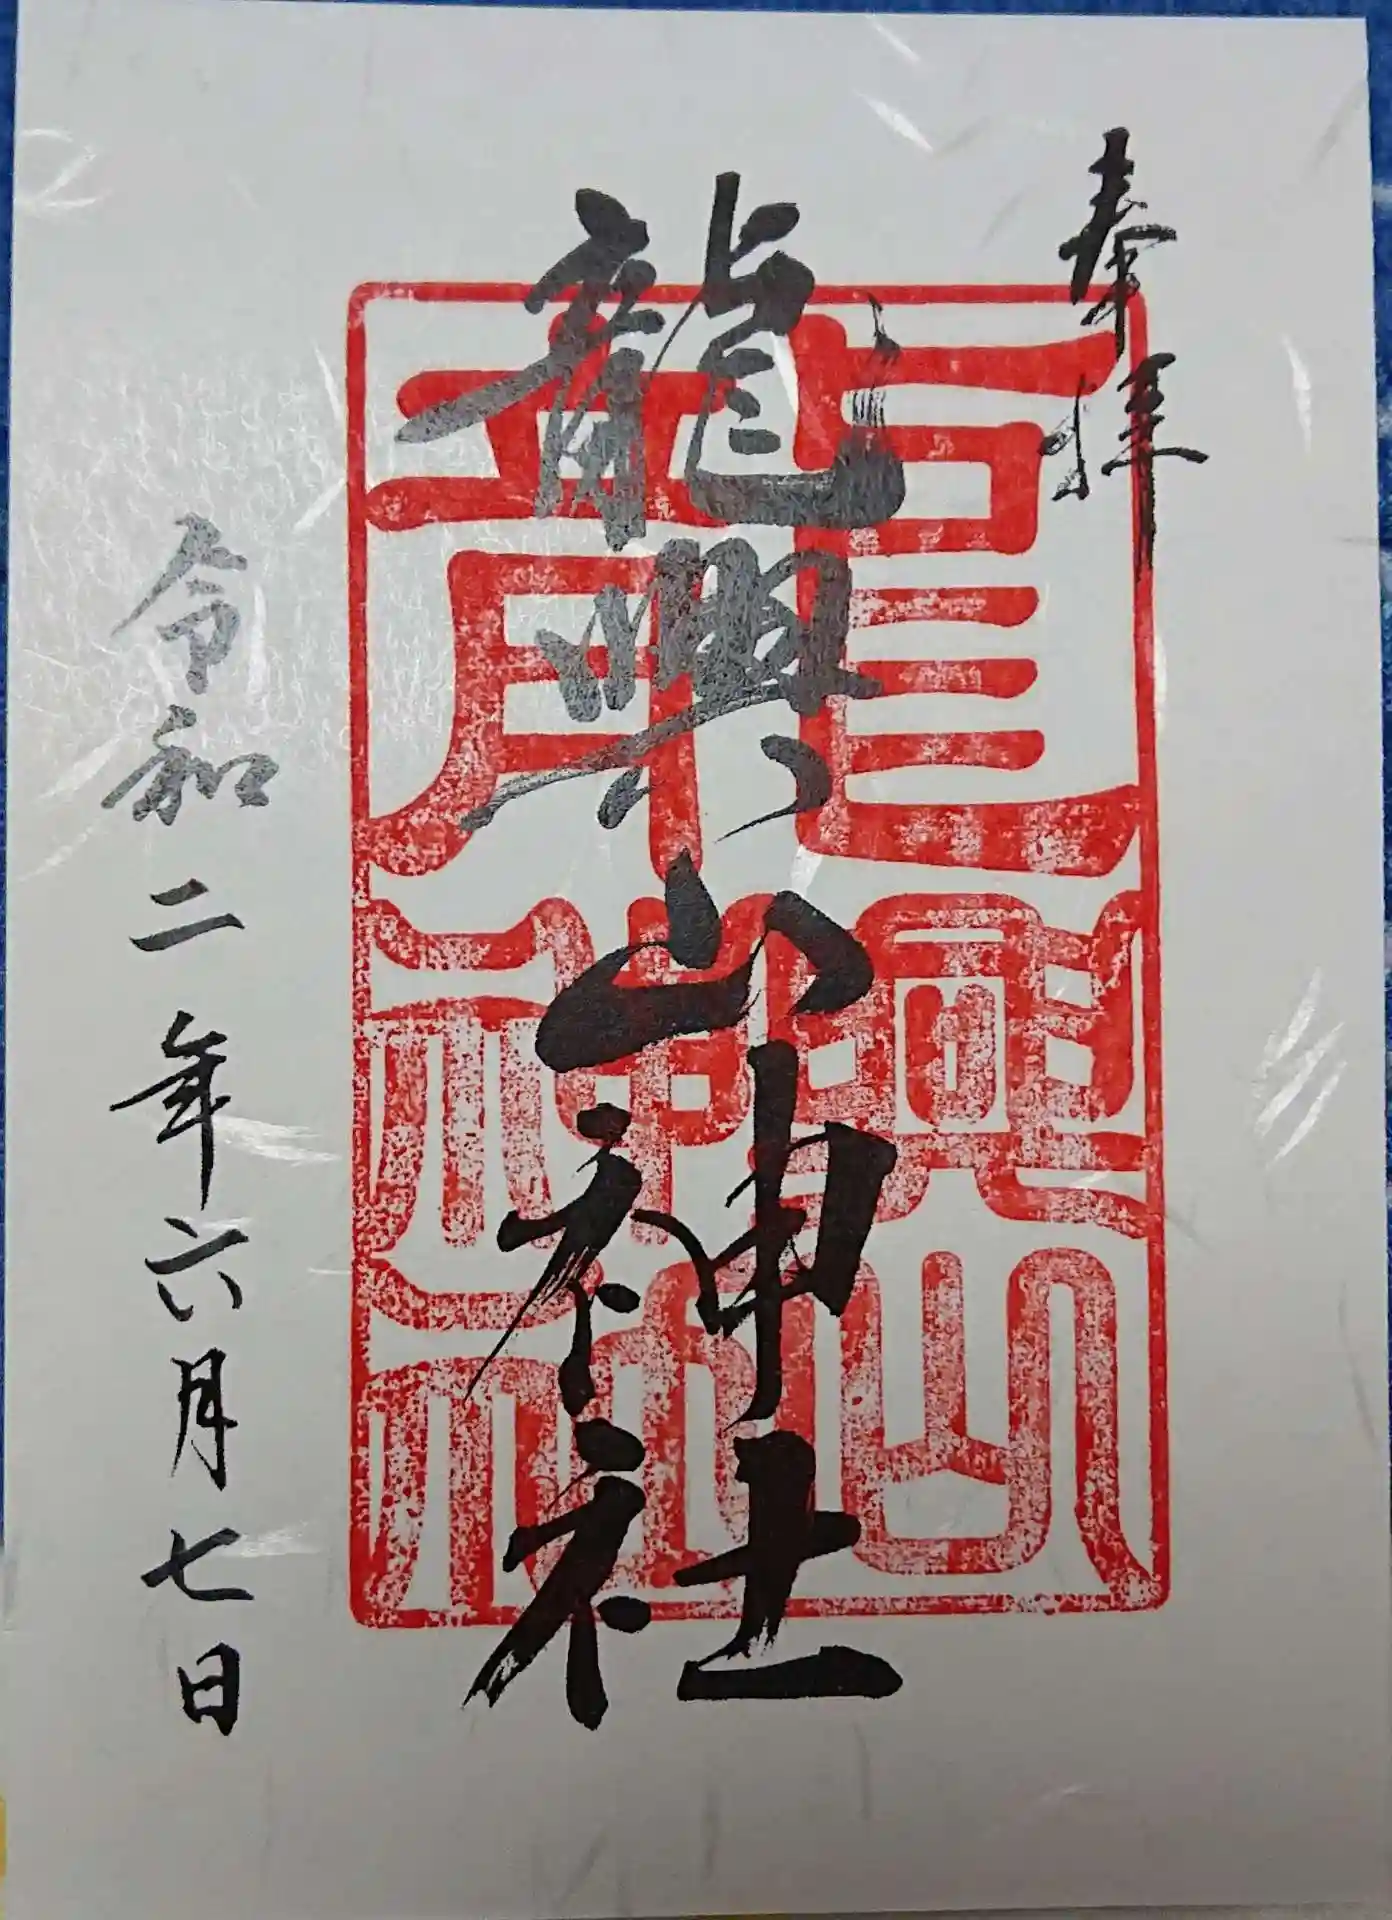 奉拝
龍興山神社
龍興山神社
令和二年六月七日